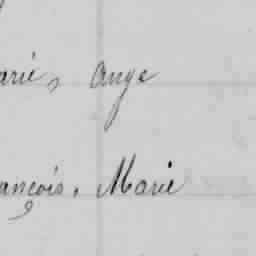 arie, Ange
ançois, Marie